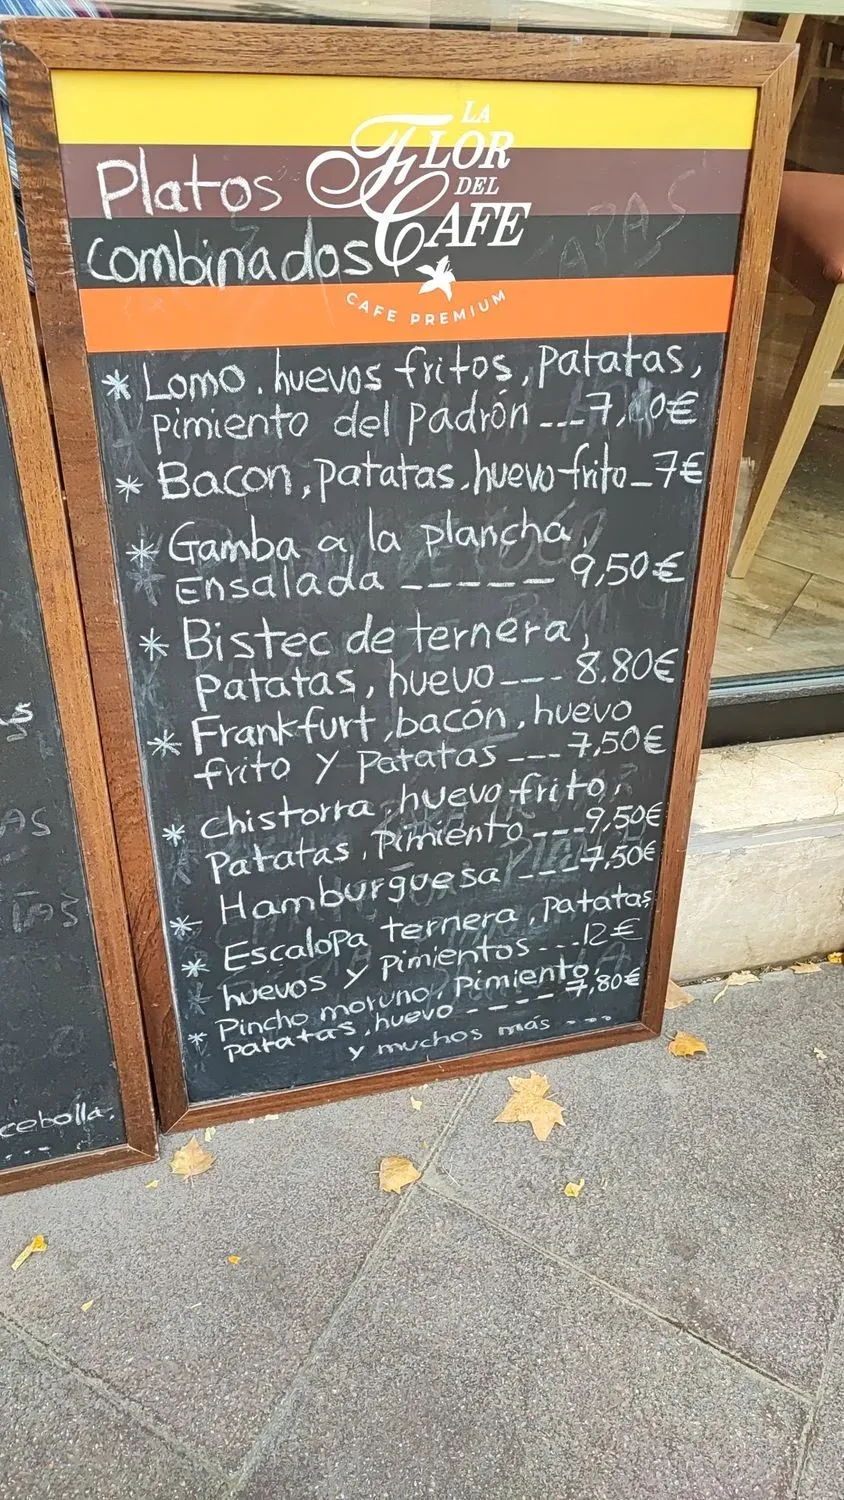 LA
FLOR
DEL
CAFE
CAFE PREMIUM
Platos
combinados
TAPAS
* Lomo, huevos fritos, patatas,
pimiento del padrón ---
* Bacon, patatas, huevo frito - 7€
* Gamba a la plancha,
Ensalada ------ 9,50€
* Bistec de ternera,
patatas, huevo --- 8.80€
* Frankfurt, bacón, huevo
frito y patatas --- 7,50€
* chistorra, huevo frito,
Patatas, Pimiento --- 9,50€
* Hamburguesa --- 7,50€
* Escalopa ternera, patatas
huevos y pimientos --- 12€
* Pincho moruno, pimiento,
patatas, huevo ---- 7,80€
y muchos más ---
cebolla,
...